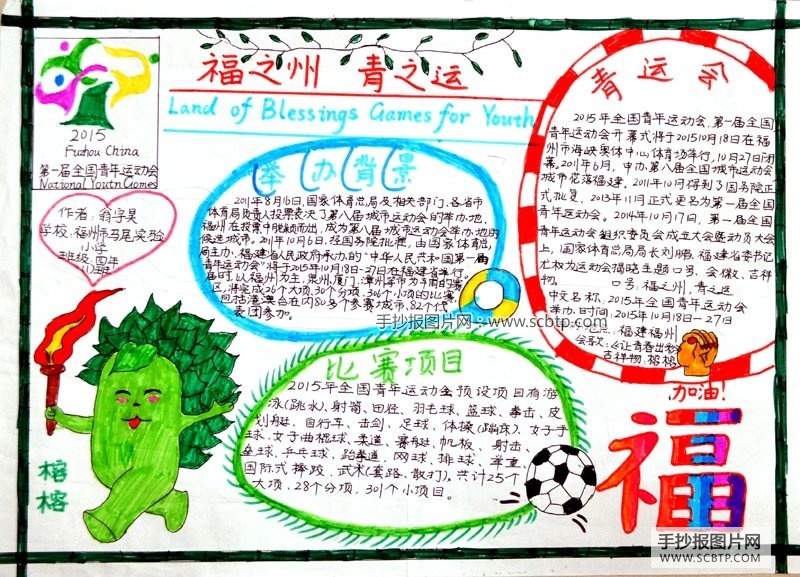 福之州 青之运
Land of Blessings Games for Youth
2015
Fuzhou China
第一届全国青年运动会
National Youtn Games
学校:福州市马尾实验
小学
班级:四年
(1)班
举办背景
2011年8月16日,国家体育总局及相关部门、各省市
体育局负责人投票表决了第八届城市运动会的举办地,
福州在投票中脱颖而出,成为第八届城市运动会举办地的
候选城市。2011年10月6日,经国务院批准,由国家体育总
局主办、福建省人民政府承办的"中华人民共和国第一届
青年运动会"将于2015年10月18日-27日在福建省举行。
届时,以福州为主,泉州、厦门、漳州等市为辅的赛
区,将完成26个大项,30个分项,306个小项的比赛,
包括港澳台在内80多个参赛城市,82个代
表团参加。
青运会
2015年全国青年运动会,第一届全国
青年运动会开幕式将于201510月18日在福
州市海峡奥体中心体育场举行,10月27日闭
幕。2011年6月,申办第八届全国城市运动会
城市花落福建,2011年10月得到了国务院正
式批复,2013年11月正式更名为第一届全国
青年运动会。2014年10月17日,第一届全国
青年运动会组织委员会成立大会暨动员大会
上,国家体育总局局长刘鹏、福建省委书记
尤权为运动会揭晓主题口号、会徽、吉祥
物。 口号:福之州,青之运
中文名称:2015年全国青年运动会
举办时间:2015年10月18日-27日
地点:福建福州
会歌:《让青春出彩
吉祥物:榕榕
加油!
福
比赛项目
2015年全国青年运动会预设项目有游
泳(跳水)、射箭、田径、羽毛球、篮球、拳击、皮
划艇、自行车、击剑、足球、体操(蹦床)、女子手
球、女子曲棍球、柔道、赛艇、帆板、射击、
垒球、乒乓球、跆拳道、网球、排球、举重
国际式摔跤、武术(套路、散打),共计25个
大项,28个分项,301个小项目。
榕
榕
手抄报图片网:www.scbtp.com
手抄报图片网
WWW.SCBTP.COM